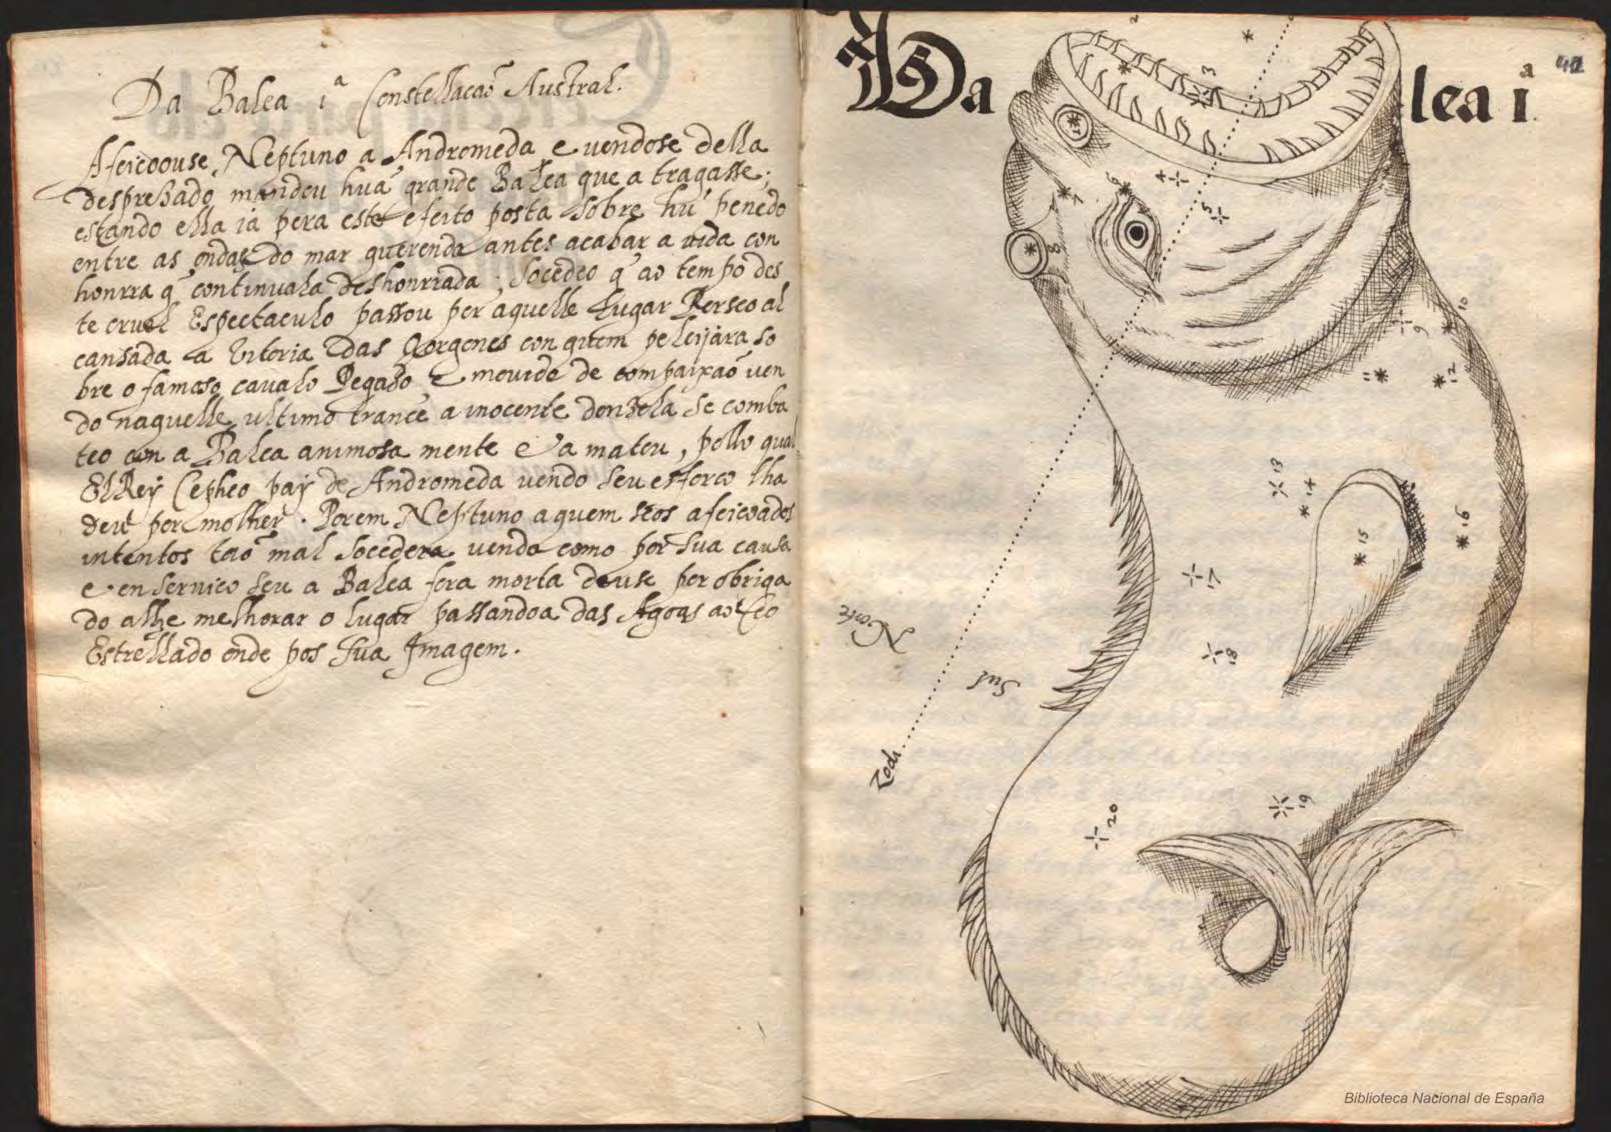 Da Balea 1ª Constellacaõ Austral.
Afeicoouse Neptuno a Andromeda e vendose della
despreSado mandou huã grande Balea que a tragasse;
estando ella ia pera este efeito posta sobre hũ penedo
entre as ondas do mar querendo antes acabar a vida con
honrra q̃ continuala deshonrrada; Socedeo q̃ ao tempo des
te cruel Espectaculo passou per aquelle Lugar Perseo al
cansada a Vitoria das Gorgones con quem peleijara so
bre o famoso cavalo Pegaso e movido de compaixaõ ven
do naquelle ultimo trance a inocente donzela se comba
teo con a Balea animosa mente e a matou, pello qual
ElRey Cepheo pay de Andromeda vendo seu esforco lha
deu por molher. Porem Neptuno a quem seos afeicoados
intentos taõ mal socedera vendo como por sua causa
e en servico seu a Balea fora morta deuse por obriga
do a lhe melhorar o lugar passandoa das Agoas ao Ceo
Estrellado onde pos sua Imagem.
Da
lea 1ª
41
2
3
4
5
6
7
8
9
10
11
12
13
14
15
16
17
18
19
20
Norte
Sul
Zodi
Biblioteca Nacional de España